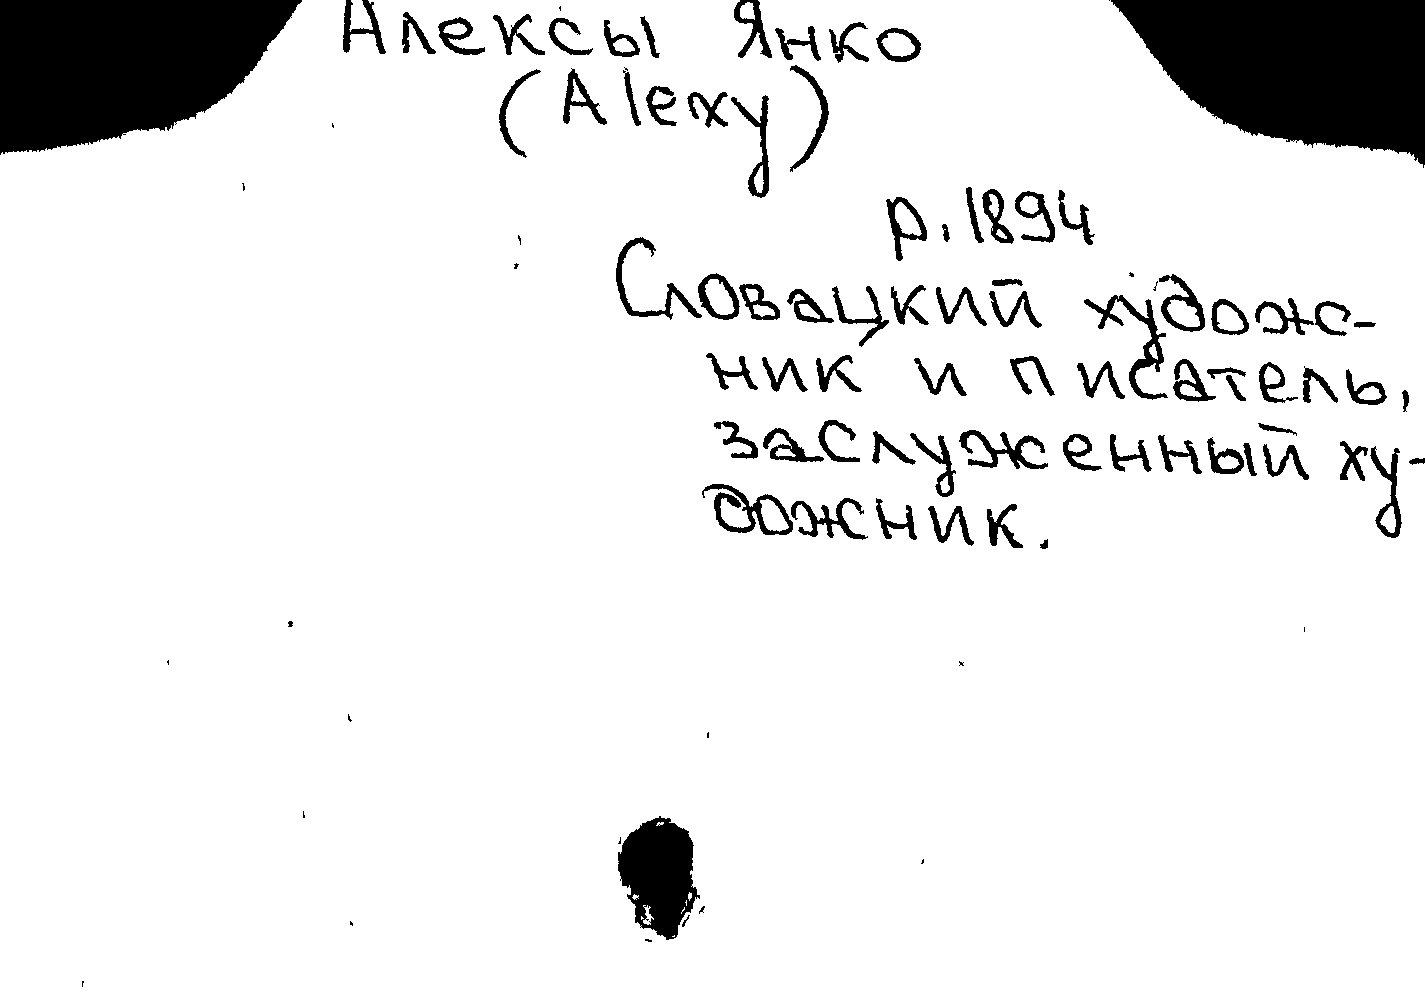 Алексы Янко
(Alexy)
р. 1894
Словацкий худож-
ник и писатель,
заслуженный ху-
дожник.